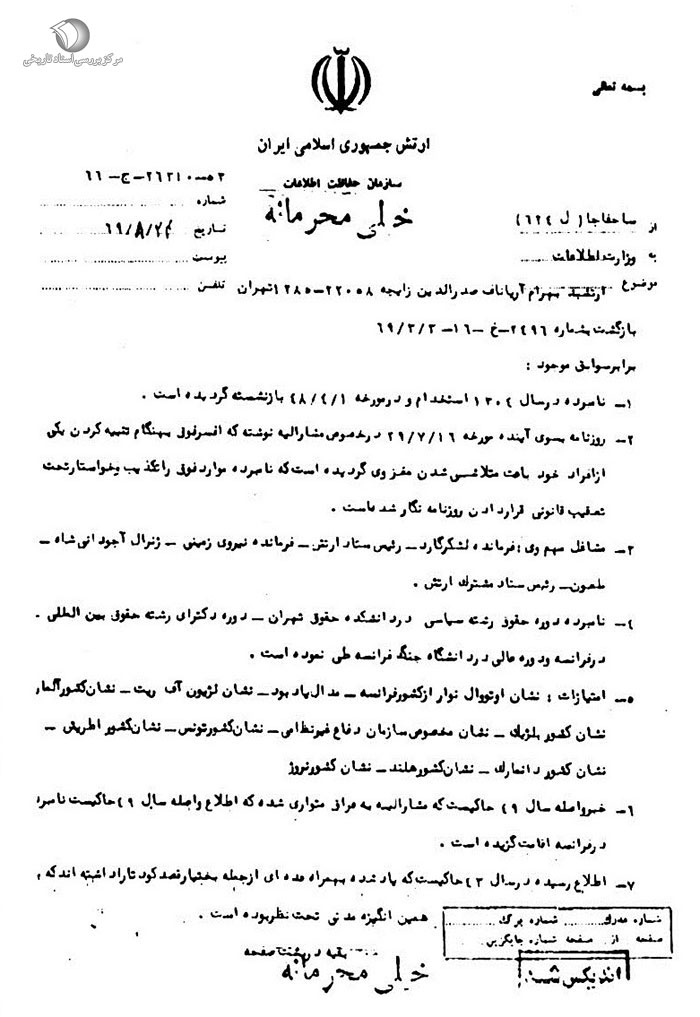 مرکز بررسی اسناد تاریخی
بسمه تعالی
ارتش جمهوری اسلامی ایران
سازمان حفاظت اطلاعات
خیلی محرمانه
شماره
تاریخ ۶۹/۸/
پیوست
تلفن
از ساحفاجا (ل ٦٢٤)
به وزارت اطلاعات
موضوع ارتشبد بهرام آریانا ف صدرالدین زایچه ٢٢٠٥٨-١٢٨٥ تهران
بازگشت بشماره ٢٤٩٦-خ-١٦-٦٩/٣/٣
برابر سوابق موجود :
١- نامبرده در سال ١٣٠٤ استخدام و در مورخه ٤٨/٤/١ بازنشسته گردیده است .
٢- روزنامه بسوی آینده مورخه ٢٩/٧/١٦ در خصوص مشارالیه نوشته که افسر فوق بهنگام تنبیه کردن یکی
از افراد خود باعث متلاشی شدن مغز وی گردیده است که نامبرده موارد فوق را تکذیب و خواستار تحت
تعقیب قانونی قرار دادن روزنامه نگار شده است.
٣- مشاغل مهم وی : فرمانده لشکر گارد - رئیس ستاد ارتش - فرمانده نیروی زمینی - ژنرال آجودانی شاه -
رئیس ستاد مشترک ارتش .
٤- نامبرده دوره حقوق رشته سیاسی در دانشکده حقوق تهران - دوره دکترای رشته حقوق بین المللی -
در فرانسه و دوره عالی در دانشگاه جنگ فرانسه طی نموده است .
٥- امتیازات : نشان اوتووال نوار از کشور فرانسه - مدال یاد بود - نشان لژیون آف ریت - نشان کشور آلمان
نشان کشور بلژیک - نشان مخصوص سازمان دفاع غیر نظامی - نشان کشور تونس - نشان کشور اطریش -
نشان کشور دانمارک - نشان کشور هلند - نشان کشور نروژ
٦- خبر واصله سال ٤٩ حاکیست که مشارالیه به عراق متواری شده که اطلاع واصله سال ٤٩ حاکیست نامبرده
در فرانسه اقامت گزیده است .
٧- اطلاع رسیده در سال ٤٣ حاکیست که یاد شده بهمراه عده ای از جمله بختیار قصد کودتا را داشته اند که
همین انگیزه مدتی تحت نظر بوده است .
بقیه در پشت صفحه
شماره مدرک شماره برگ
صفحه از صفحه شماره جایگزینی
خیلی محرمانه
اندیکس شد